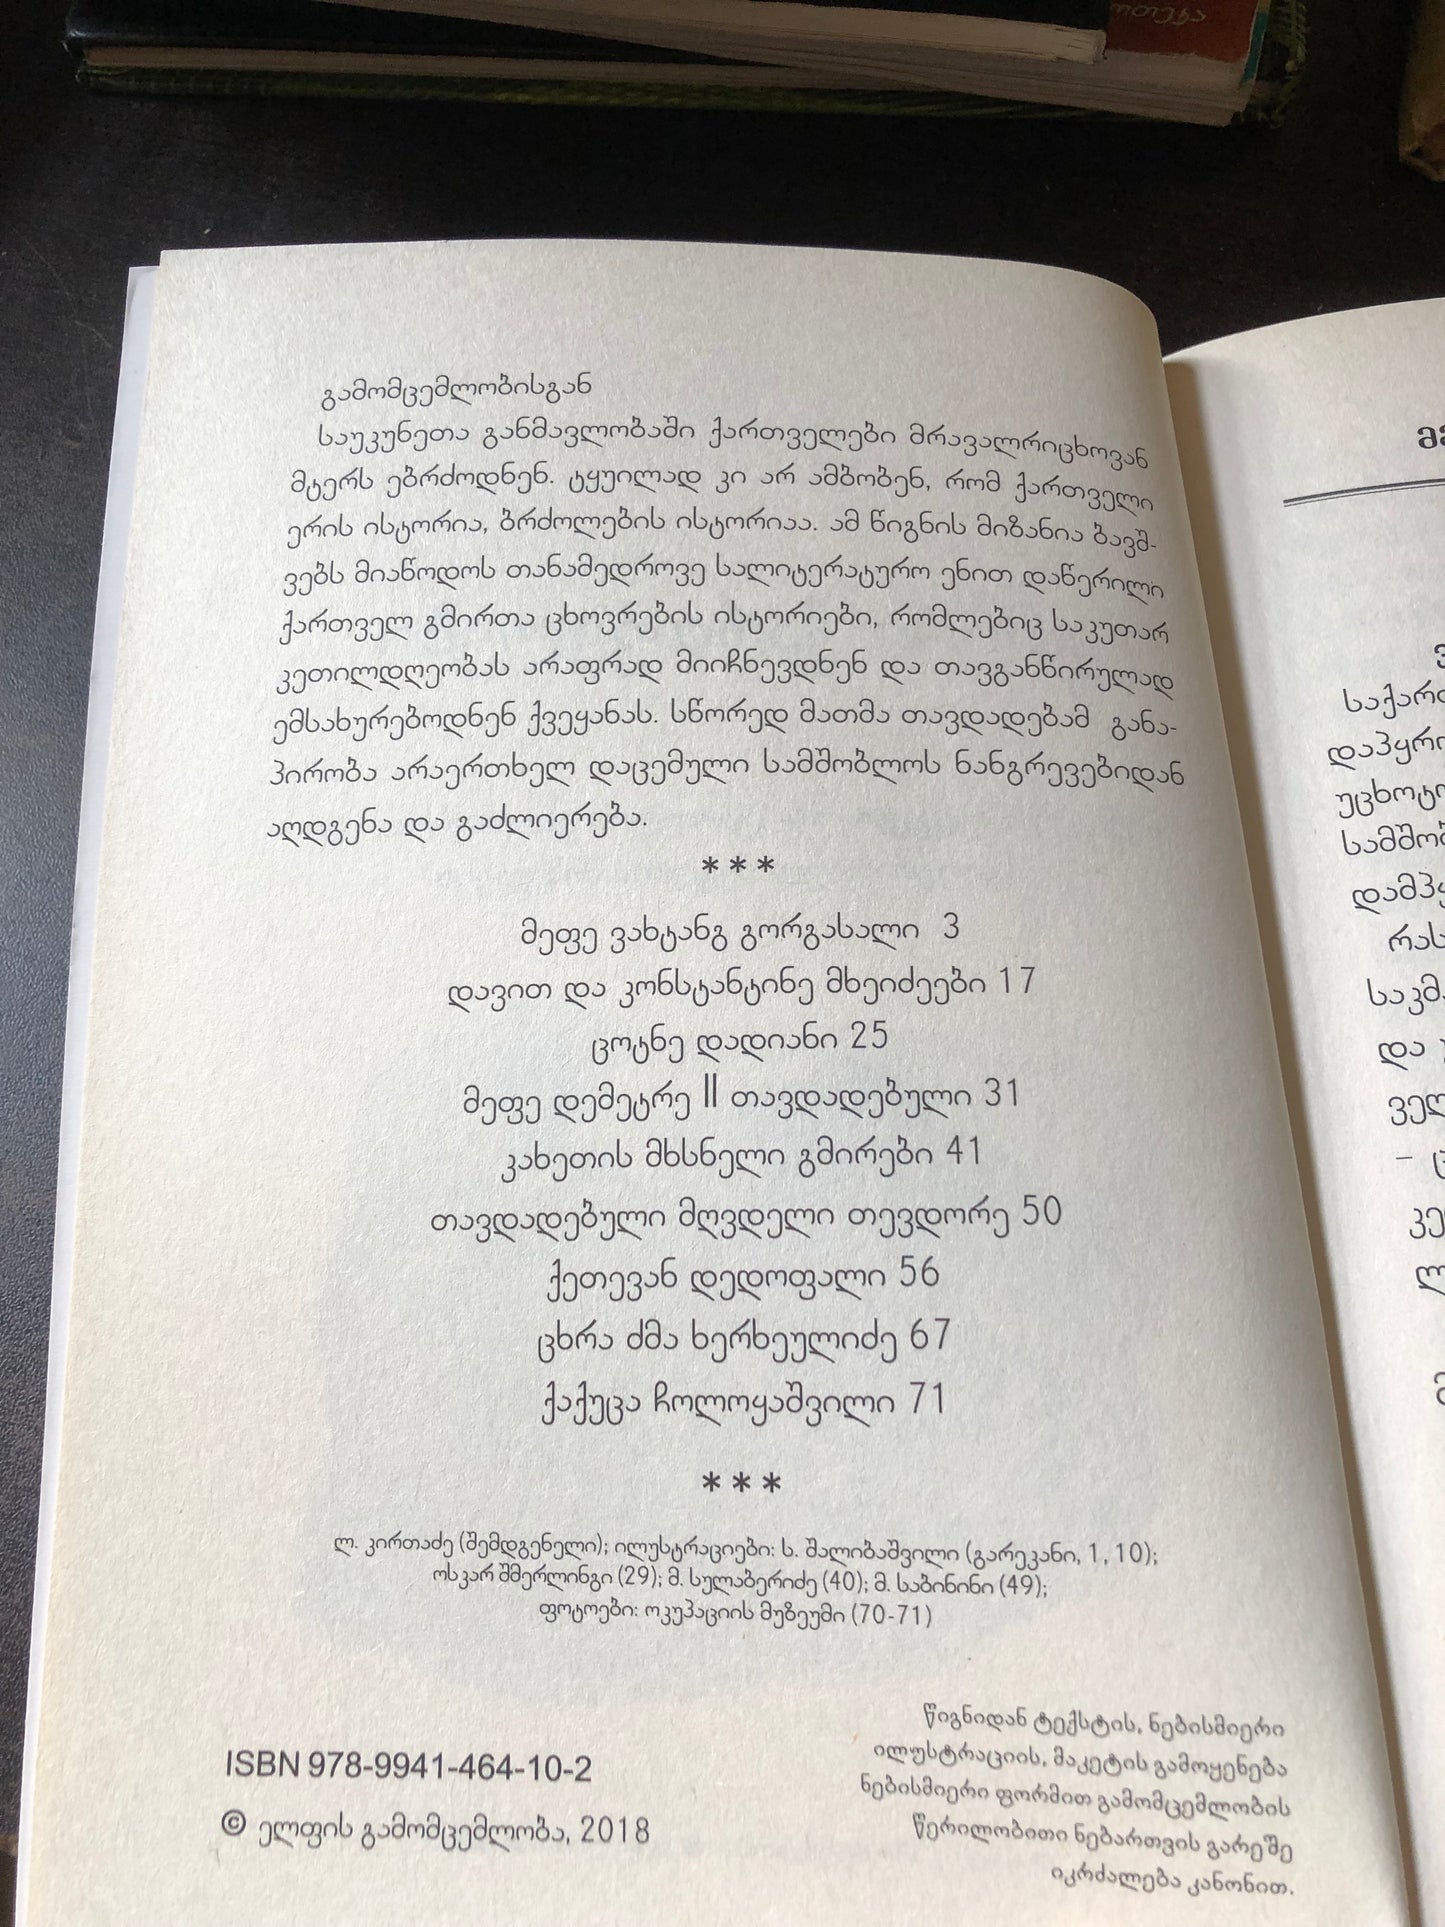 გამომცემლობისგან
საუკუნეთა განმავლობაში ქართველები მრავალრიცხოვან
მტერს ებრძოდნენ. ტყუილად კი არ ამბობენ, რომ ქართველი
ერის ისტორია, ბრძოლების ისტორიაა. ამ წიგნის მიზანია ბავშ-
ვებს მიაწოდოს თანამედროვე სალიტერატურო ენით დაწერილი
ქართველ გმირთა ცხოვრების ისტორიები, რომლებიც საკუთარ
კეთილდღეობას არაფრად მიიჩნევდნენ და თავგანწირულად
ემსახურებოდნენ ქვეყანას. სწორედ მათმა თავდადებამ განა-
პირობა არაერთხელ დაცემული სამშობლოს ნანგრევებიდან
აღდგენა და გაძლიერება.
* * *
მეფე ვახტანგ გორგასალი 3
დავით და კონსტანტინე მხეიძეები 17
ცოტნე დადიანი 25
მეფე დემეტრე II თავდადებული 31
კახეთის მხსნელი გმირები 41
თავდადებული მღვდელი თევდორე 50
ქეთევან დედოფალი 56
ცხრა ძმა ხერხეულიძე 67
ქაქუცა ჩოლოყაშვილი 71
* * *
ლ. კირთაძე (შემდგენელი); ილუსტრაციები: ს. შალიბაშვილი (გარეკანი, 1, 10);
ოსკარ შმერლინგი (29); მ. სულაბერიძე (40); მ. საბინინი (49);
ფოტოები: ოკუპაციის მუზეუმი (70-71)
წიგნიდან ტექსტის, ნებისმიერი
ილუსტრაციის, მაკეტის გამოყენება
ნებისმიერი ფორმით გამომცემლობის
წერილობითი ნებართვის გარეშე
იკრძალება კანონით.
ISBN 978-9941-464-10-2
© ელფის გამომცემლობა, 2018